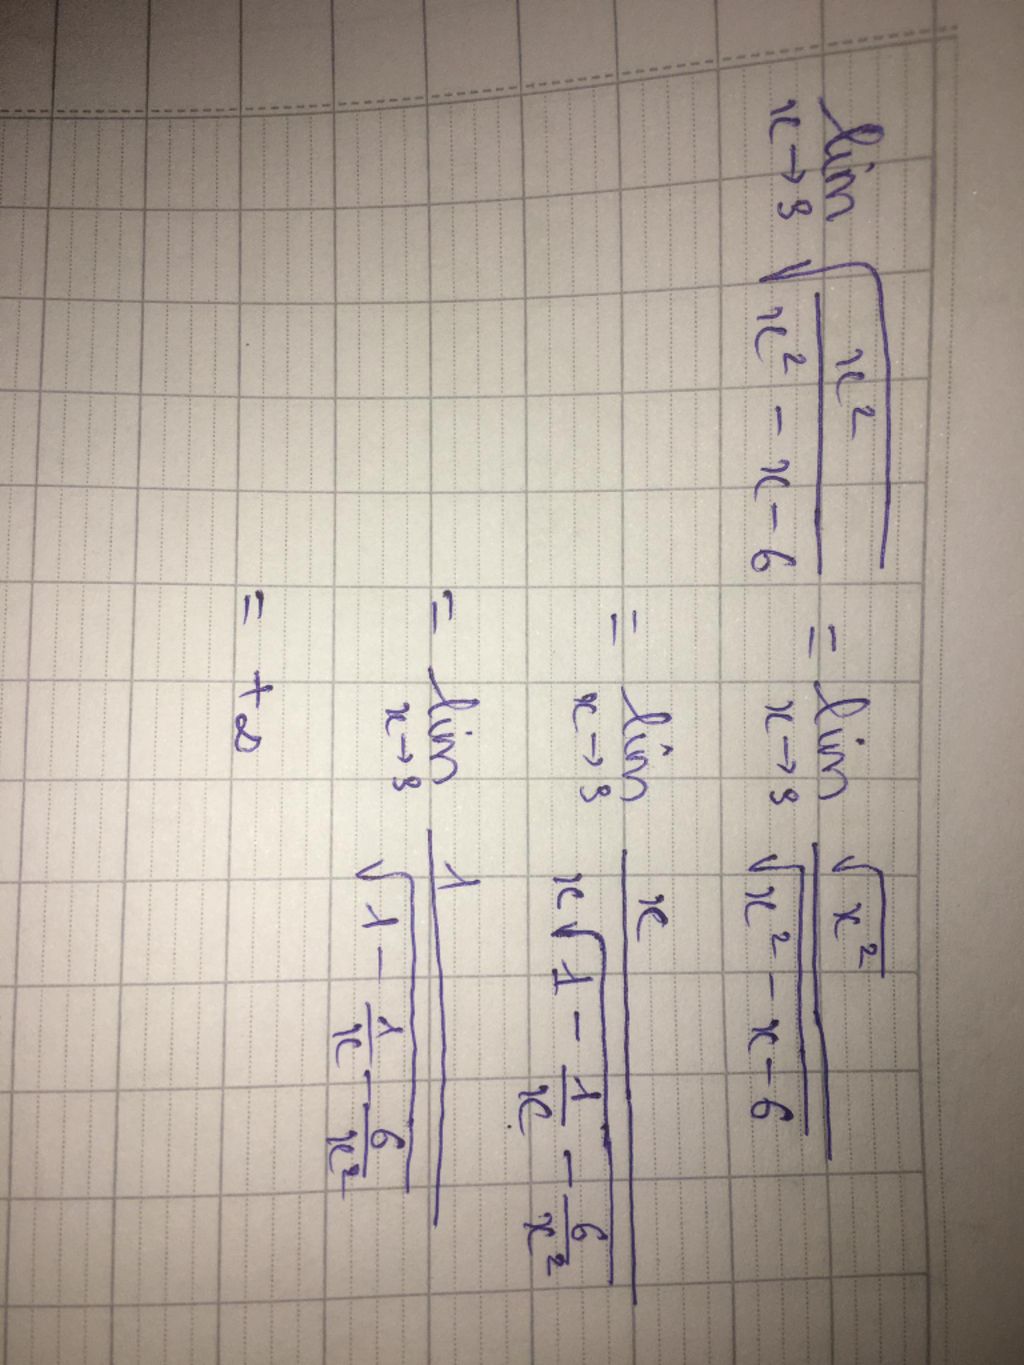 lim x→3 √(x²/(x² - x - 6)) = lim x→3 √x²/√(x² - x - 6)
= lim x→3 x/(x√(1 - 1/x - 6/x²))
= lim x→3 1/√(1 - 1/x - 6/x²)
= +∞